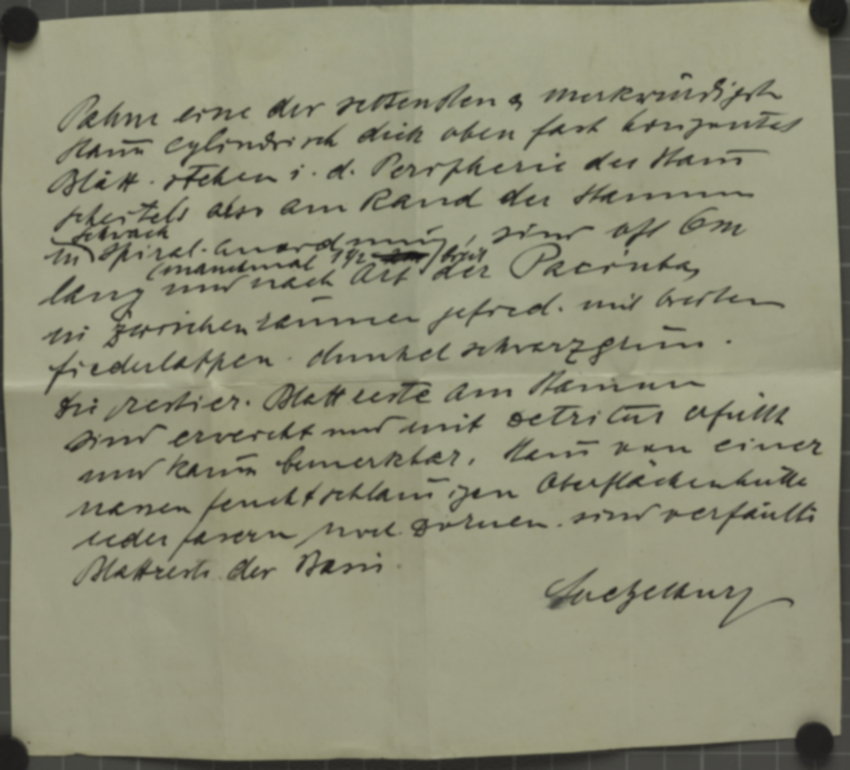 Palme eine der seltensten & merkwürdigste
Stam̄ cylindrisch dick oben fast horizontal
Blätt. stehen i. d. Peripherie des Stam̄
scheitels also am Rand des Stammes
in schwach spiral. anordnung, sind oft 6m
lang und manchmal 1 1/2 breit nach Art der
in Zwischenräumen gefied. mit breiten
fiederlappen. dunkel schwarzgrün.
Die Blattreste am Stamme
sind erweicht und mit Detritus erfüllt
und kaum bemerkbar. Stam̄ von einer
nassen feucht schlam̄igen Oberflächenhülle
weder fasern noch Dornen. sind verfaulte
Blattreste der Basis.
Luetzelburg